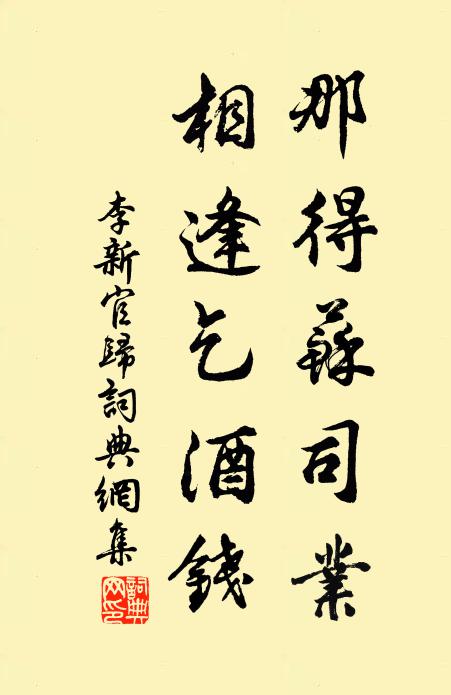 那得蘇司業
相逢乞酒錢
李新官歸詞典網集
詞典網印